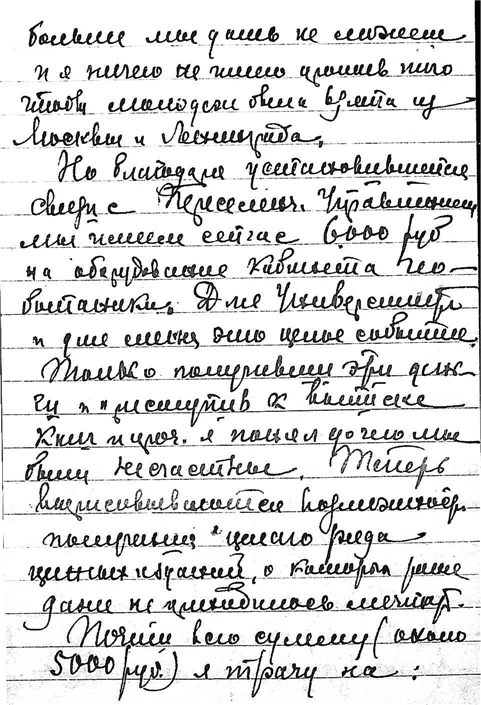 больше мы дать не можем
и я ничего не имею против того
чтобы молодой был взят из
Москвы и Ленинграда.
Но благодаря установившейся
связи с Переселенч. Управлением
мы имеем сейчас 6000 руб
на оборудование кабинета гео-
ботаники. Для Университета
и для меня это целое событие.
Только получивши эти день-
ги и приступив к выписке
книг и проч. я понял до чего мы
были несчастны. Теперь
вырисовывается возможность
получения целого ряда
ценных изданий, о которых ранее
даже не приходилось мечтать.
Почти всю сумму (около
5000 руб.) я трачу на: